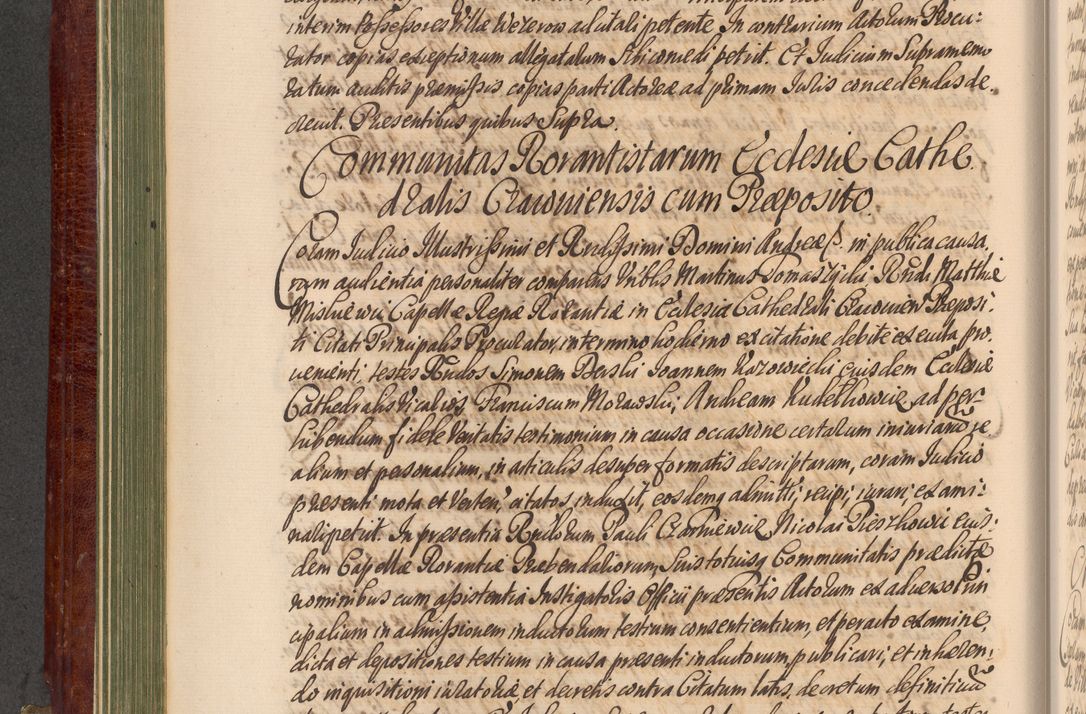 interim Possessores Villæ Wezerow ac lutali petente. In contrarium Actorum Procu:
rator copias exceptionum allegatarum Sibi concedi petiit. Et Judicium Supramemo
ratum auditis præmissis copias parti Actoreæ ad primam Juris concedendas de.
crevit. Præsentibus quibus Supra.
Communitas Rorantistarum Ecclesiæ Cathe.
dralis Cracoviensis cum Præposito.
Coram Judicio Illustrissimi et Rndissimi Domini Andreæ S. in publica causa,
rum audientia personaliter comparens Nblis Martinus Tomaszycki, Rndi Matthiæ
Misluewic Capellæ Regiæ Rorantiæ in Ecclesia Cathedrali Cracovien Præposi:
ti Citati Principalis Procurator, in termino hodierno ex citatione debite executa pro.
venienti, testes Rndos Simonem Berski Joannem Kazowiecki eiusdem Ecclesiæ
Cathedralis Vicarios, Franciscum Morawski, Andream Kudelkowic, ad per:
hibendum fidele Veritatis testimonium in causa occasione certarum iniuriarum re
alium et personalium, in articulis desuper formatis descriptarum, coram Judicio
præsenti mota et Verten, citatos induxit, eosdemq admitti, recipi, iurari, exami:
nari petiit. In præsentia Rndorum Pauli Czerniewic Nicolai Pieszkowic eius:
dem Capellæ Rorantiæ Præbendariorum, Suis totiusq Communitatis prædictæ
nominibus cum assistentia Instigatoris Officii præsentis Actorum ex adverso Prin
cipalium in admissionem inductorum testium consentientium, et peracto examine,
dicta et depositiones testium in causa præsenti inductorum, publicari, et inhæren:
do inquisitioni iuratoriæ et decretis contra Citatum latis, decretum definitivum